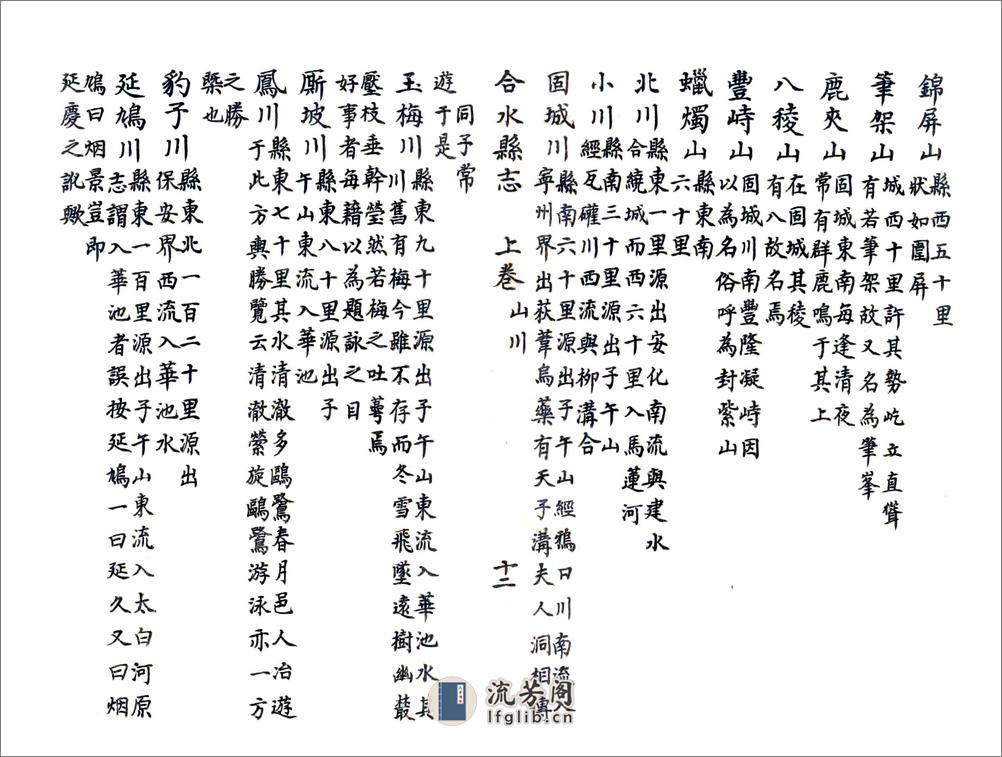 錦屏山縣西五十里
狀如圍屏
筆架山城西十里許其勢屹立直聳
有若筆架故又名為筆峯
鹿夾山固城東南每逢清夜
常有群鹿鳴于其上
八稜山在固城其稜
有八故名焉
豐峙山固城川南豐隆凝峙因
以為名俗呼為封紫山
蠟燭山縣東南
六十里
北川縣東一里源出安化南流與建水
合繞城而西六十里入馬蓮河
小川縣南三十里源出子午山
經瓦礶川西流與柳溝合
固城川縣南六十里源出子午山經鴉口川南流入
寧州界出荻葦烏藥有天子溝夫人洞相傳
同子常
遊于是
合水縣志 上卷 山川 十二
玉梅川縣東九十里源出子午山東流入華池水其
川舊有梅今雖不存而冬雪飛墜遠樹幽叢
壓枝垂幹瑩然若梅之吐萼焉
好事者每藉以為題詠之目
廝坡川縣東八十里源出子
午山東流入華池
鳳川縣東七十里其水清澈多鷗鷺春月邑人冶遊
于此方輿勝覽云清澈縈旋鷗鷺游泳亦一方
之勝
槩也
豹子川縣東北一百二十里源出
保安界西流入華池水
延鳩川縣東一百里源出子午山東流入太白河原
志謂入華池者誤按延鳩一曰延久又曰烟
鳩曰烟景豈即
延慶之訛歟
流芳阁
lfglib.cn